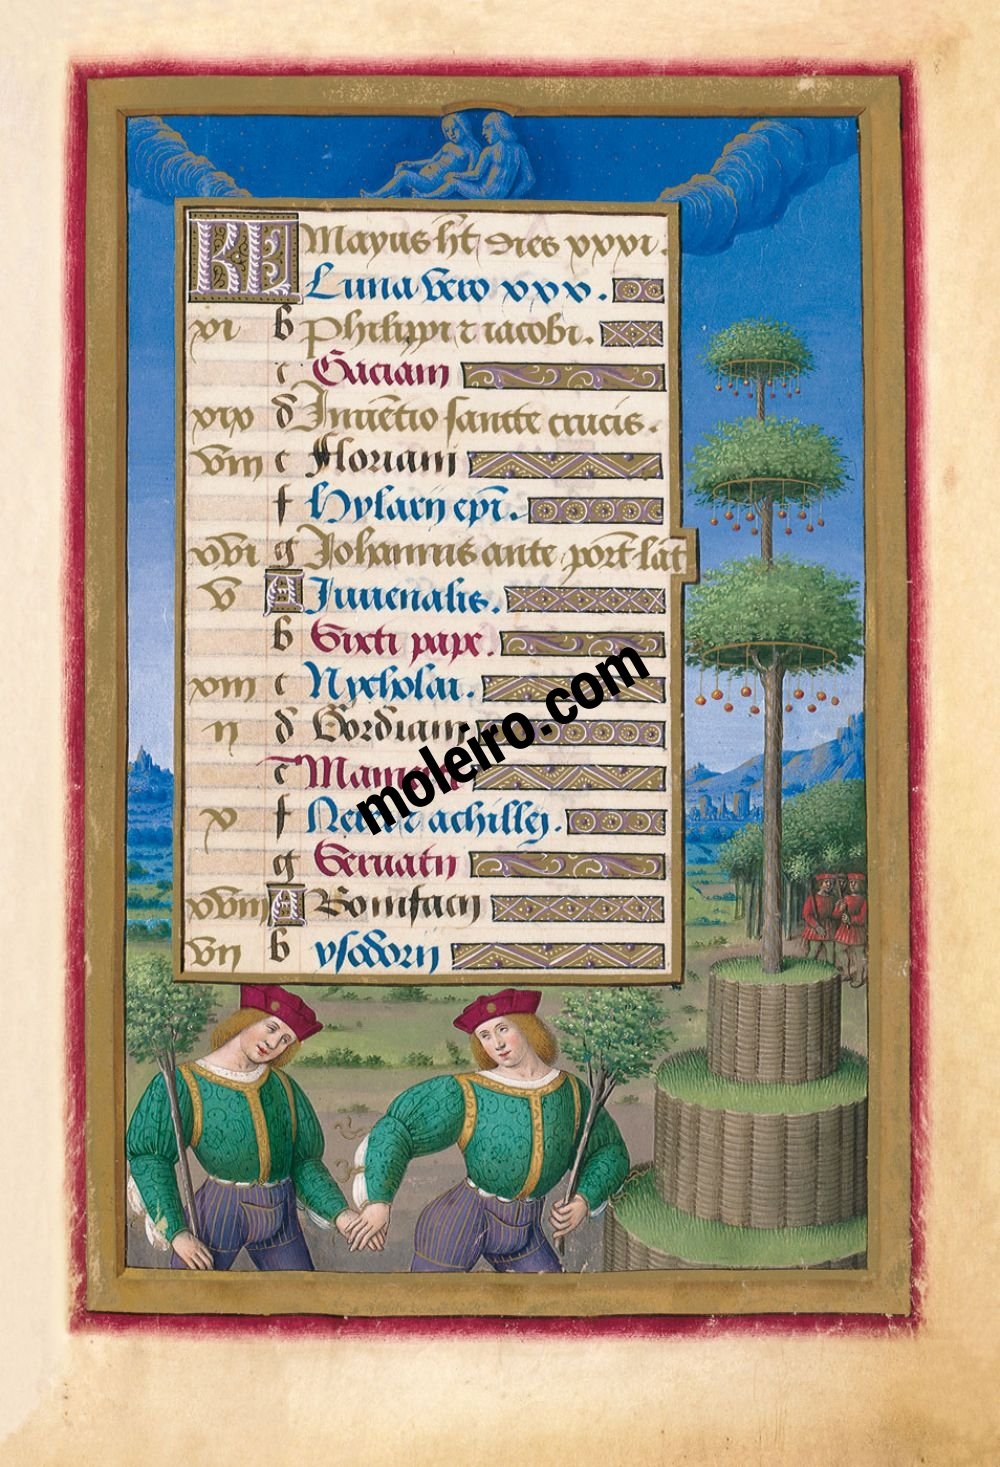 KL Mayus ht dies xxxi.
Luna vero xxx.
xi b Philippi z iacobi.
c Gaciani
xix d Inuētio sancte crucis.
viii e Floriani
f Hylarij epi.
xvi g Johannis ante port lat
v A Iuuenalis.
b Sixti pape.
xiii c Nycholai.
ii d Gordiani
e
x f achillej.
g Seruatij
xviii A Bonifacij
vii b ysodorij
moleiro.com